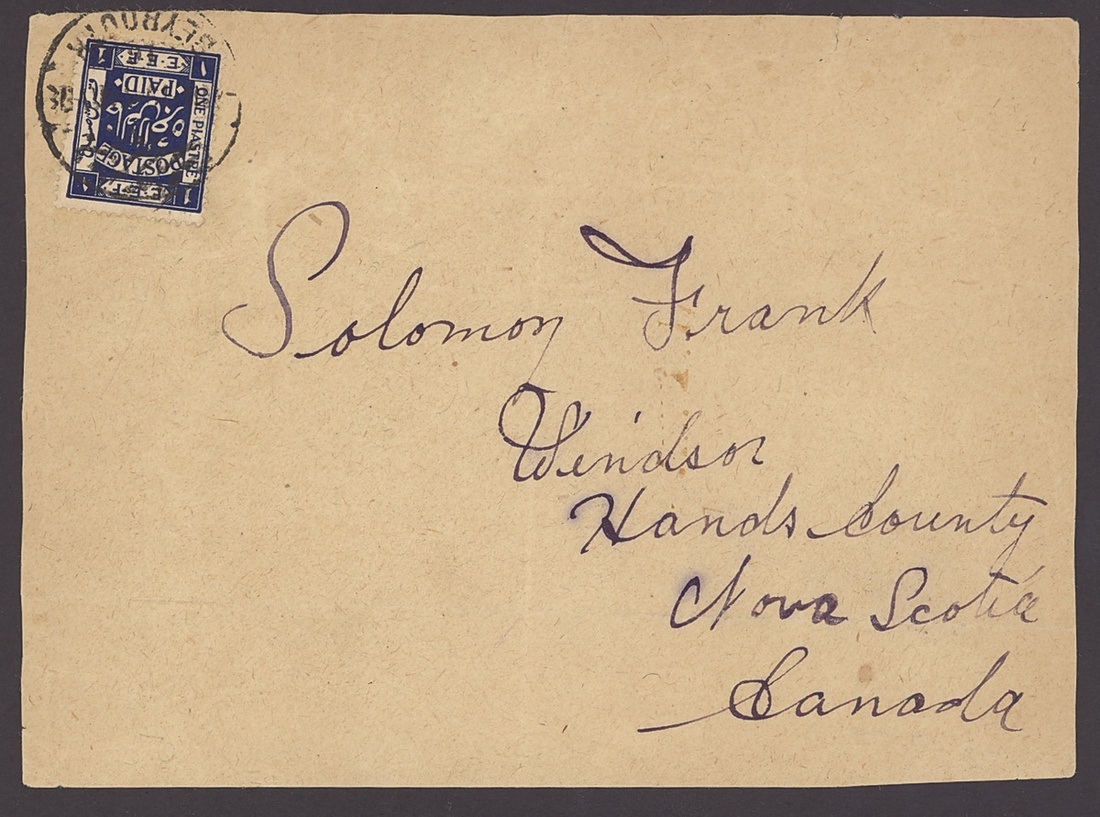 BEYROUTH
1 E.E.F. ١
PAID
ONE PIASTRE
POSTAGE
١ E.E.F. 1
Solomon Frank
Windsor
Hands County
Nova Scotia
Canada